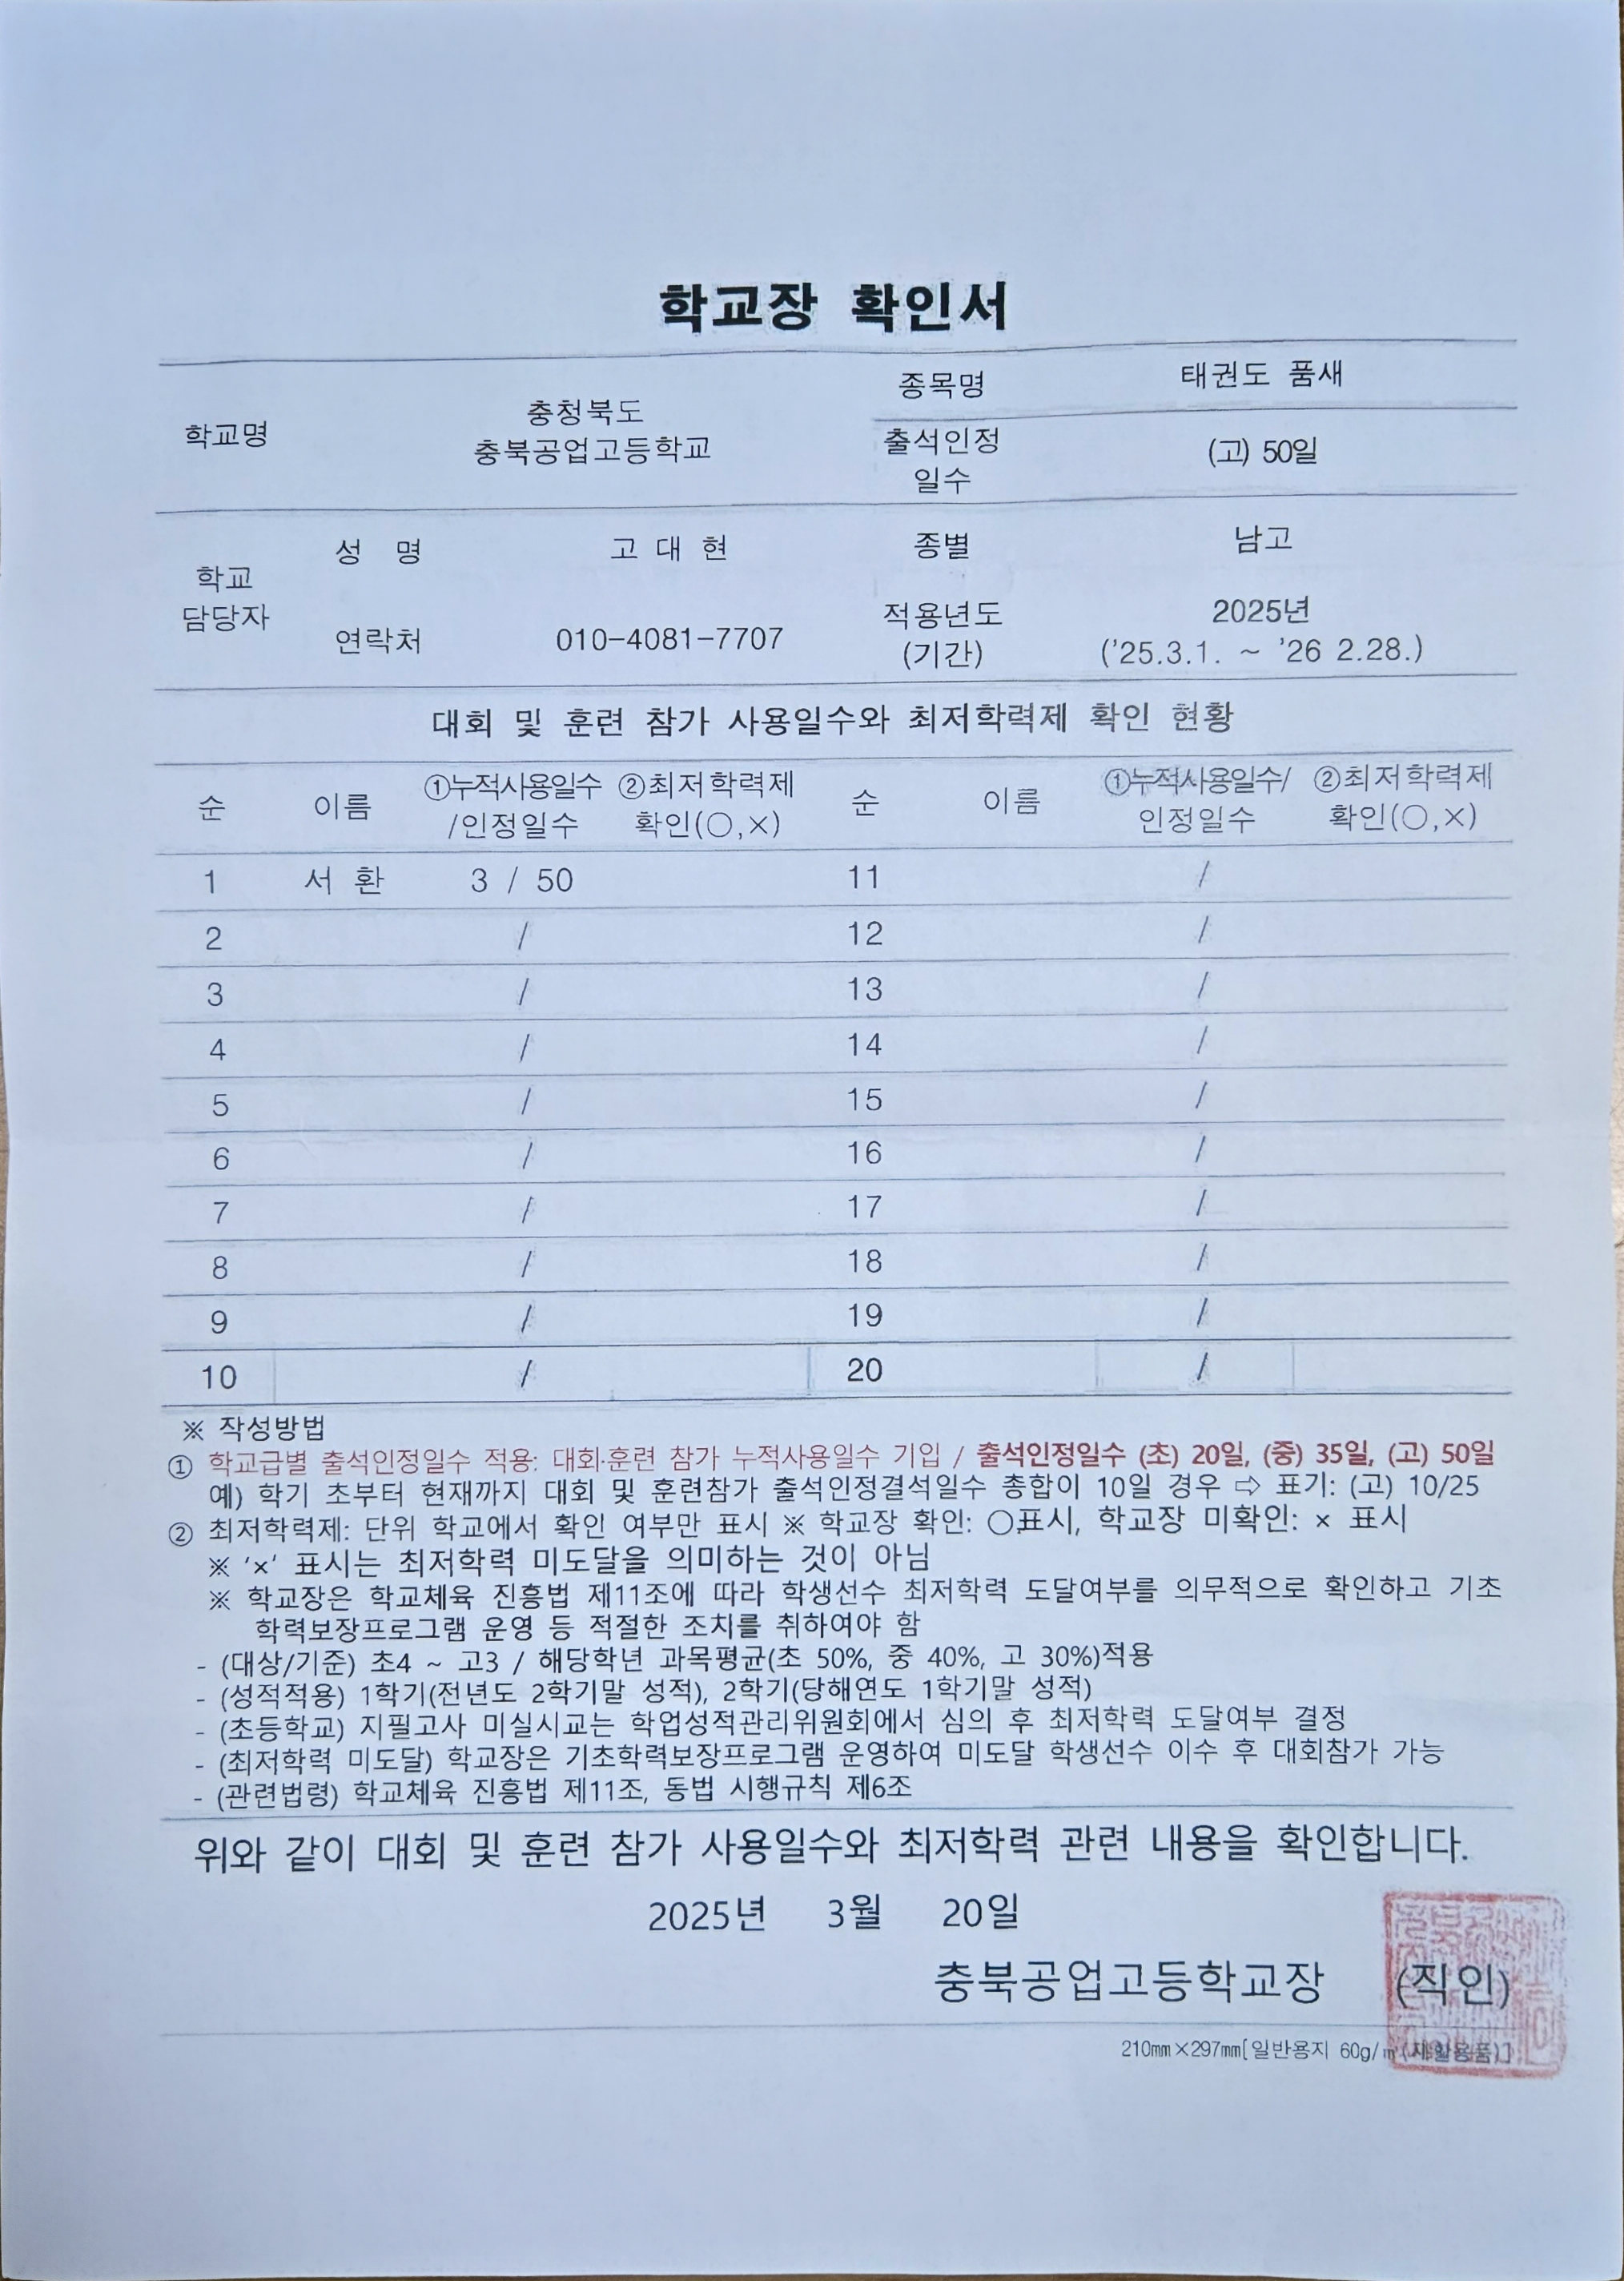 학교장 확인서
학교명
충청북도
충북공업고등학교
종목명
태권도 품새
출석인정
일수
(고) 50일
학교
담당자
성 명
고 대 현
종별
남고
연락처
010-4081-7707
적용년도
(기간)
2025년
('25.3.1. ~ '26 2.28.)
대회 및 훈련 참가 사용일수와 최저학력제 확인 현황
순
이름
①누적사용일수
/인정일수
②최저학력제
확인(○,×)
순
이름
①누적사용일수/
인정일수
②최저학력제
확인(○,×)
1 서 환 3 / 50 11 /
2 / 12 /
3 / 13 /
4 / 14 /
5 / 15 /
6 / 16 /
7 / 17 /
8 / 18 /
9 / 19 /
10 / 20 /
※ 작성방법
① 학교급별 출석인정일수 적용: 대회·훈련 참가 누적사용일수 기입 / 출석인정일수 (초) 20일, (중) 35일, (고) 50일
예) 학기 초부터 현재까지 대회 및 훈련참가 출석인정결석일수 총합이 10일 경우 ⇨ 표기: (고) 10/25
② 최저학력제: 단위 학교에서 확인 여부만 표시 ※ 학교장 확인: ○표시, 학교장 미확인: × 표시
※ '×' 표시는 최저학력 미도달을 의미하는 것이 아님
※ 학교장은 학교체육 진흥법 제11조에 따라 학생선수 최저학력 도달여부를 의무적으로 확인하고 기초
학력보장프로그램 운영 등 적절한 조치를 취하여야 함
- (대상/기준) 초4 ~ 고3 / 해당학년 과목평균(초 50%, 중 40%, 고 30%)적용
- (성적적용) 1학기(전년도 2학기말 성적), 2학기(당해연도 1학기말 성적)
- (초등학교) 지필고사 미실시교는 학업성적관리위원회에서 심의 후 최저학력 도달여부 결정
- (최저학력 미도달) 학교장은 기초학력보장프로그램 운영하여 미도달 학생선수 이수 후 대회참가 가능
- (관련법령) 학교체육 진흥법 제11조, 동법 시행규칙 제6조
위와 같이 대회 및 훈련 참가 사용일수와 최저학력 관련 내용을 확인합니다.
2025년 3월 20일
충북공업고등학교장 (직인)
210㎜×297㎜[일반용지 60g/㎡(재활용품)]